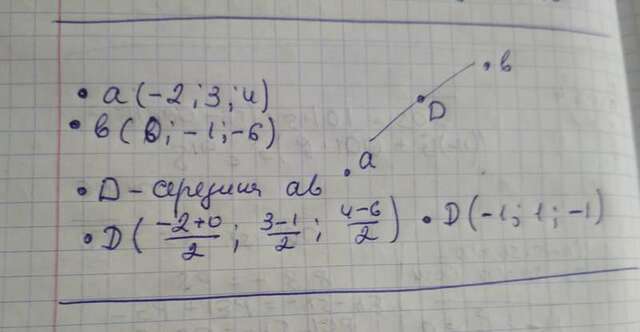 • a(-2; 3; 4)
• в(0; -1; -6)
• D - середина ав
• D(\frac{-2+0}{2}; \frac{3-1}{2}; \frac{4-6}{2}) • D(-1; 1; -1)
в
D
a